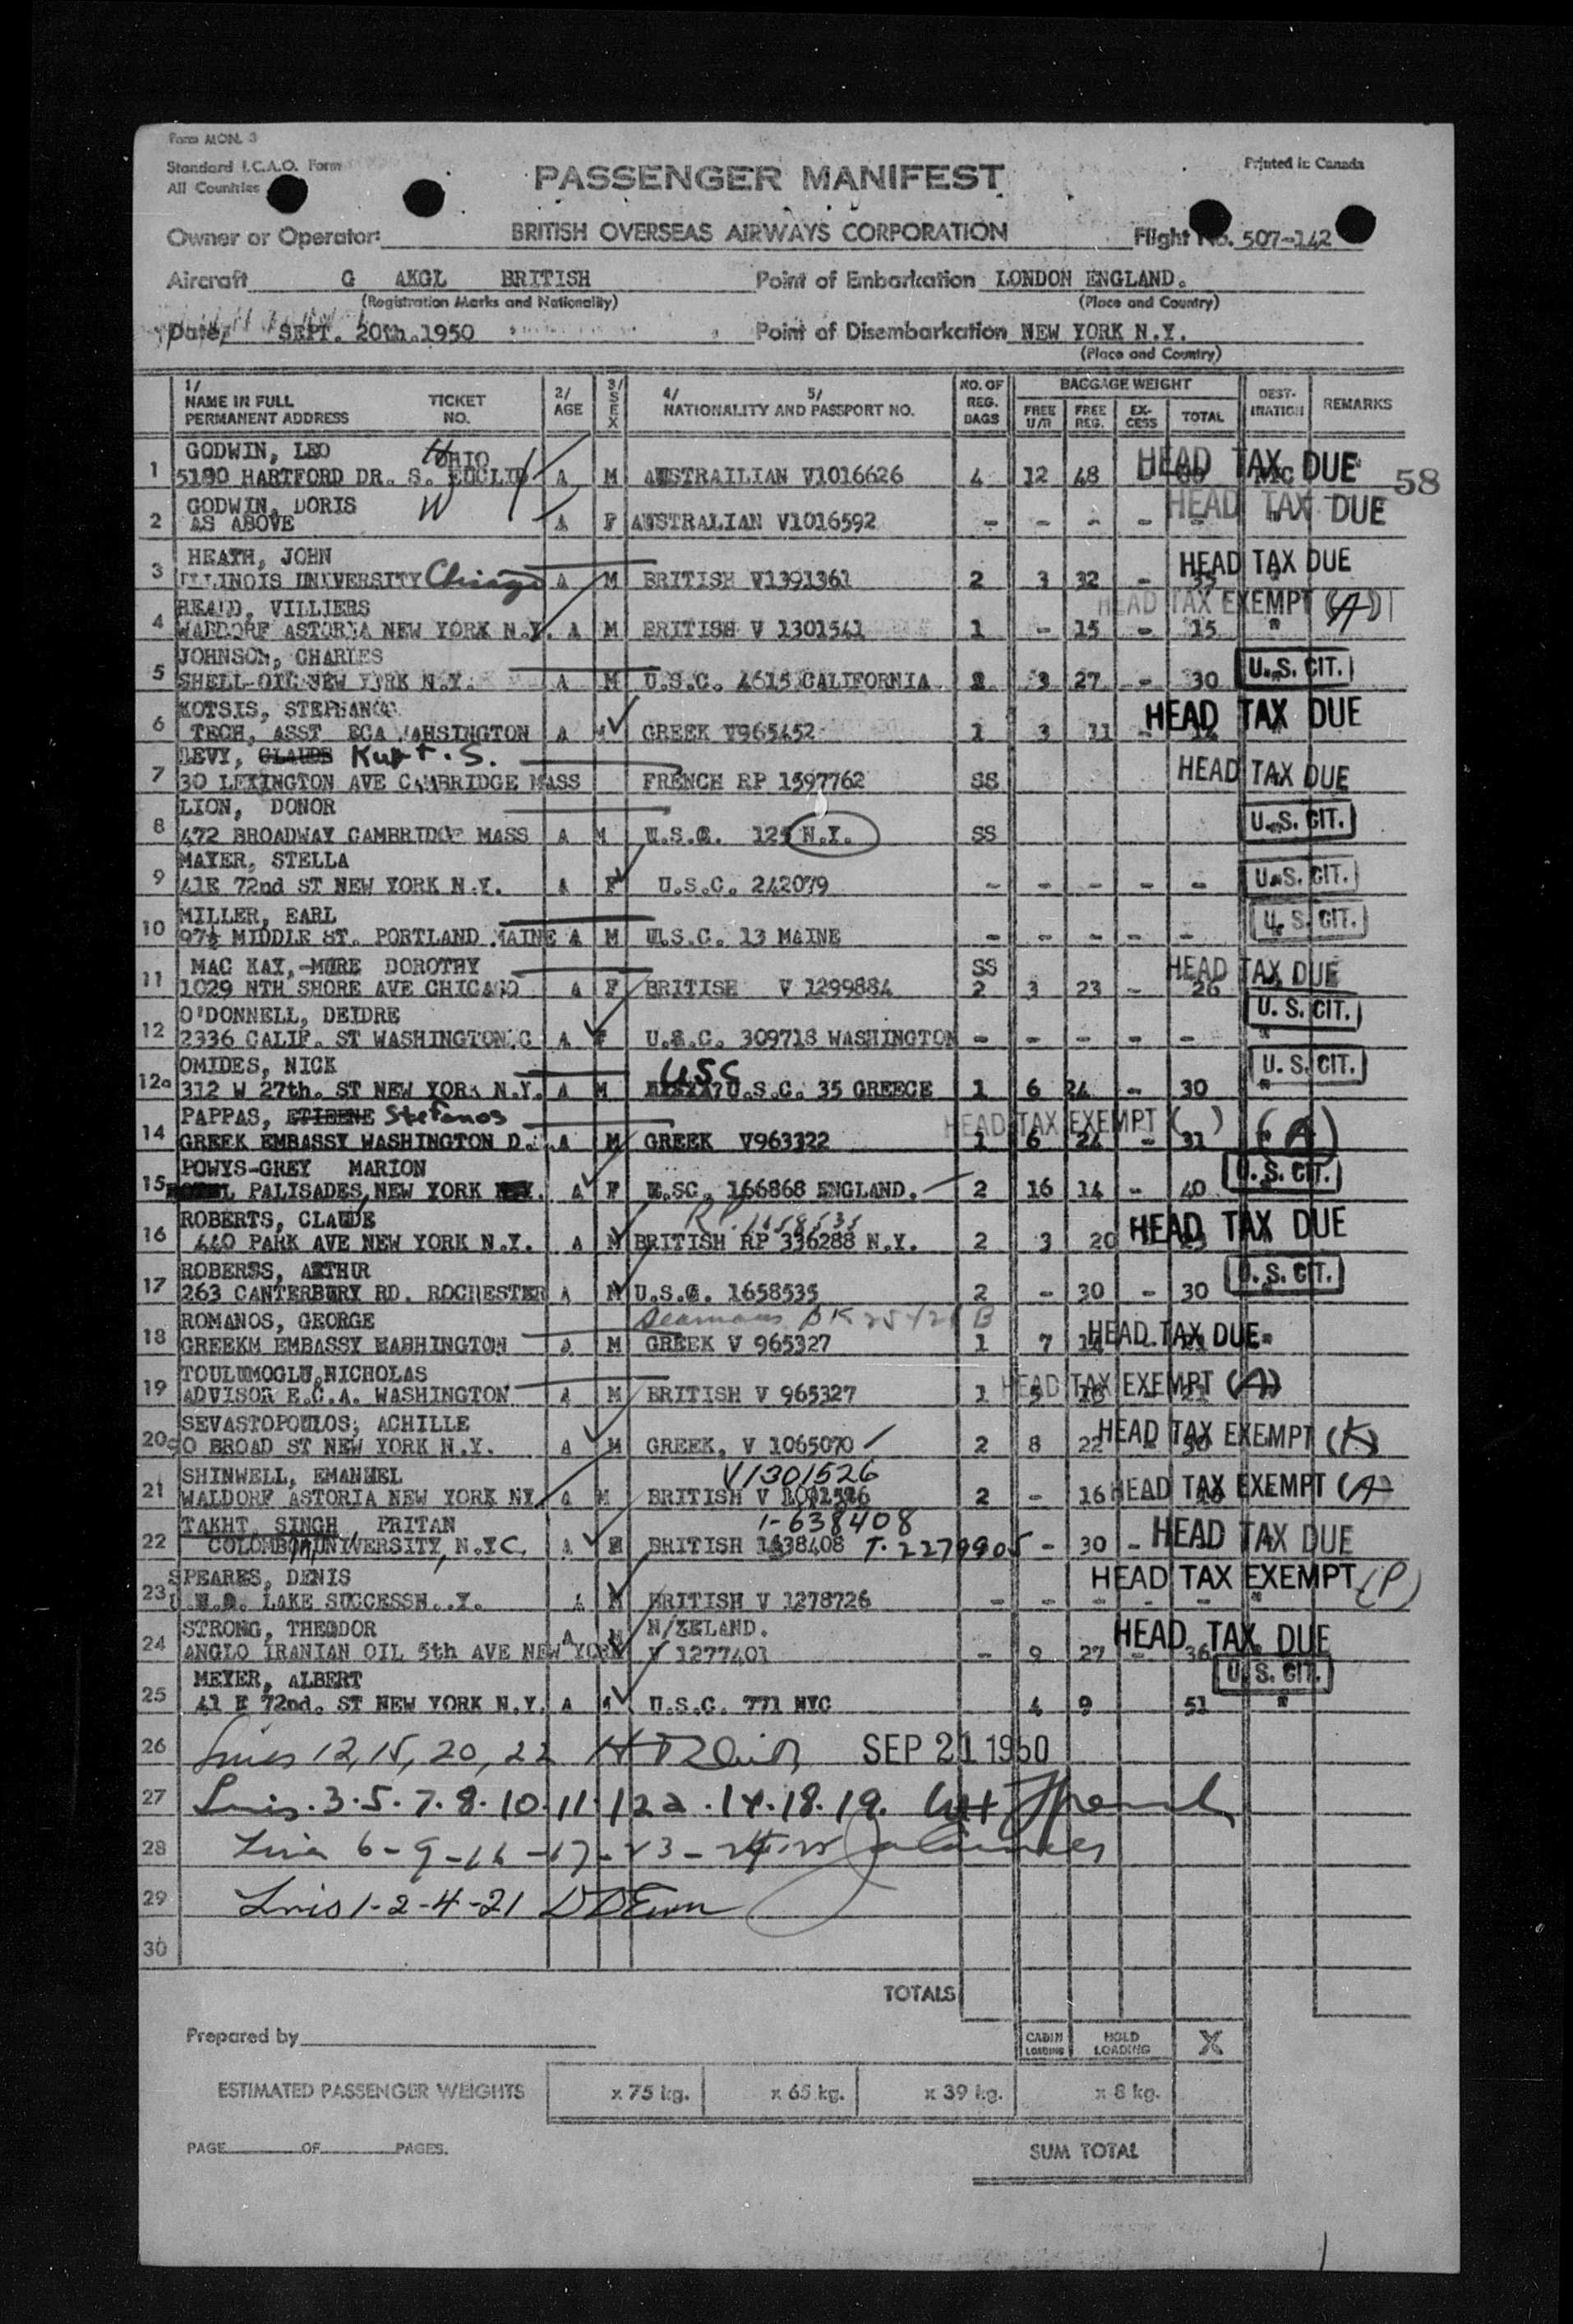 Form MON. 3
Standard I.C.A.O. Form
All Countries
Printed in Canada
PASSENGER MANIFEST
Owner or Operator: BRITISH OVERSEAS AIRWAYS CORPORATION Flight No. 507-142
Aircraft G AKGL BRITISH Point of Embarkation LONDON ENGLAND.
(Registration Marks and Nationality) (Place and Country)
Date SEPT. 20th.1950 Point of Disembarkation NEW YORK N.Y.
(Place and Country)
1/ NAME IN FULL PERMANENT ADDRESS TICKET NO. 2/ AGE 3/ SEX 4/ 5/ NATIONALITY AND PASSPORT NO. NO. OF REG. BAGS BAGGAGE WEIGHT FREE U/R FREE REG. EX-CESS TOTAL DEST-INATION REMARKS
GODWIN, LEO OHIO
1 5180 HARTFORD DR. S. EUCLID A M AUSTRAILIAN V1016626 4 12 48 HEAD TAX DUE 58
GODWIN, DORIS
2 AS ABOVE A F AUSTRALIAN V1016592 - - - - - HEAD TAX DUE
HEATH, JOHN
3 ILLINOIS UNIVERSITY Chicago A M BRITISH V1391361 2 3 32 - 35 HEAD TAX DUE
HEALD, VILLIERS HEAD TAX EXEMPT (A)
4 WALDORF ASTORIA NEW YORK N.Y. A M BRITISH V 1301541 1 - 15 - 15 "
JOHNSON, CHARLES
5 SHELL-OIL NEW YORK N.Y. A M U.S.C. 4615 CALIFORNIA 3 27 - 30 U.S. CIT.
KOTSIS, STEPHANOC
6 TECH, ASST ECA WAHSINGTON A M GREEK V965452 1 3 11 HEAD TAX DUE
LEVY, CLAUDE Kurt. S.
7 30 LEXINGTON AVE CAMBRIDGE MASS FRENCH RP 1597762 SS HEAD TAX DUE
LION, DONOR
8 472 BROADWAY CAMBRIDGE MASS A M U.S.C. 125 N.Y. SS U.S. CIT.
MAYER, STELLA
9 41E 72nd ST NEW YORK N.Y. A F U.S.C. 242079 - - - - - U.S. CIT.
MILLER, EARL
10 97½ MIDDLE ST. PORTLAND MAINE A M U.S.C. 13 MAINE - - - - - U.S. CIT.
MAC KAY, MURE DOROTHY SS HEAD TAX DUE
11 1029 NTH SHORE AVE CHICAGO A F BRITISH V 1299884 2 3 23 - 26
O'DONNELL, DEIDRE
12 2336 CALIF. ST WASHINGTON.C A F U.S.C. 309718 WASHINGTON - - - - - U. S. CIT.
OMIDES, NICK USC
12a 312 W 27th. ST NEW YORK N.Y. A M U.S.C. 35 GREECE 1 6 24 - 30 U. S. CIT.
PAPPAS, ETIENNE Stefanos HEAD TAX EXEMPT ( ) (A)
14 GREEK EMBASSY WASHINGTON D. A M GREEK V963322 1 6 24 - 31
POWYS-GREY MARION
15 PALISADES, NEW YORK A F U.SC. 166868 ENGLAND. 2 16 14 - 40 U. S. CIT.
ROBERTS, CLAUDE RP. 1658535
16 440 PARK AVE NEW YORK N.Y. A M BRITISH RP 336288 N.Y. 2 3 20 HEAD TAX DUE
ROBERSS, ARTHUR
17 263 CANTERBURY RD. ROCHESTER A M U.S.C. 1658535 2 - 30 - 30 U. S. CIT.
ROMANOS, GEORGE Seamans BK
18 GREEKM EMBASSY WASHINGTON A M GREEK V 965327 1 7 14 HEAD TAX DUE
TOULUMOGLU, NICHOLAS
19 ADVISOR E.C.A. WASHINGTON A M BRITISH V 965327 1 5 16 21 HEAD TAX EXEMPT (A)
SEVASTOPOULOS, ACHILLE
20 90 BROAD ST NEW YORK N.Y. A M GREEK, V 1065070 2 8 22 - 30 HEAD TAX EXEMPT
SHINWELL, EMANUEL V1301526
21 WALDORF ASTORIA NEW YORK NY A M BRITISH V 2 - 16 HEAD TAX EXEMPT (A)
TAKHT, SINGH, PRITAN 1-638408
22 COLOMBIA UNIVERSITY, N.Y.C, A M BRITISH 1638408 T. 2279905 - 30 - HEAD TAX DUE
SPEARES, DENIS
23 U.N.O. LAKE SUCCESSN. Y. A M BRITISH V 1278726 - - - - - HEAD TAX EXEMPT (P)
STRONG, THEODOR A M N/ZELAND.
24 ANGLO IRANIAN OIL 5th AVE NEW YORK V 1277401 - 9 27 - 36 HEAD TAX DUE
MEYER, ALBERT
25 41 E 72nd. ST NEW YORK N.Y. A M U.S.C. 771 NYC 4 9 51 U. S. CIT.
26 Lines 12, 15, 20, 22 SEP 21 1950
27 Lines. 3. 5. 7. 8. 10. 11. 12a. 14. 18. 19.
28 Line 6 - 9 - 16 - 17 - 23 - 24 - 25
29 Lines 1 - 2 - 4 - 21
30
TOTALS
Prepared by CABIN LOADING HOLD LOADING X
ESTIMATED PASSENGER WEIGHTS x 75 kg. x 65 kg. x 39 kg. x 8 kg.
PAGE OF PAGES. SUM TOTAL